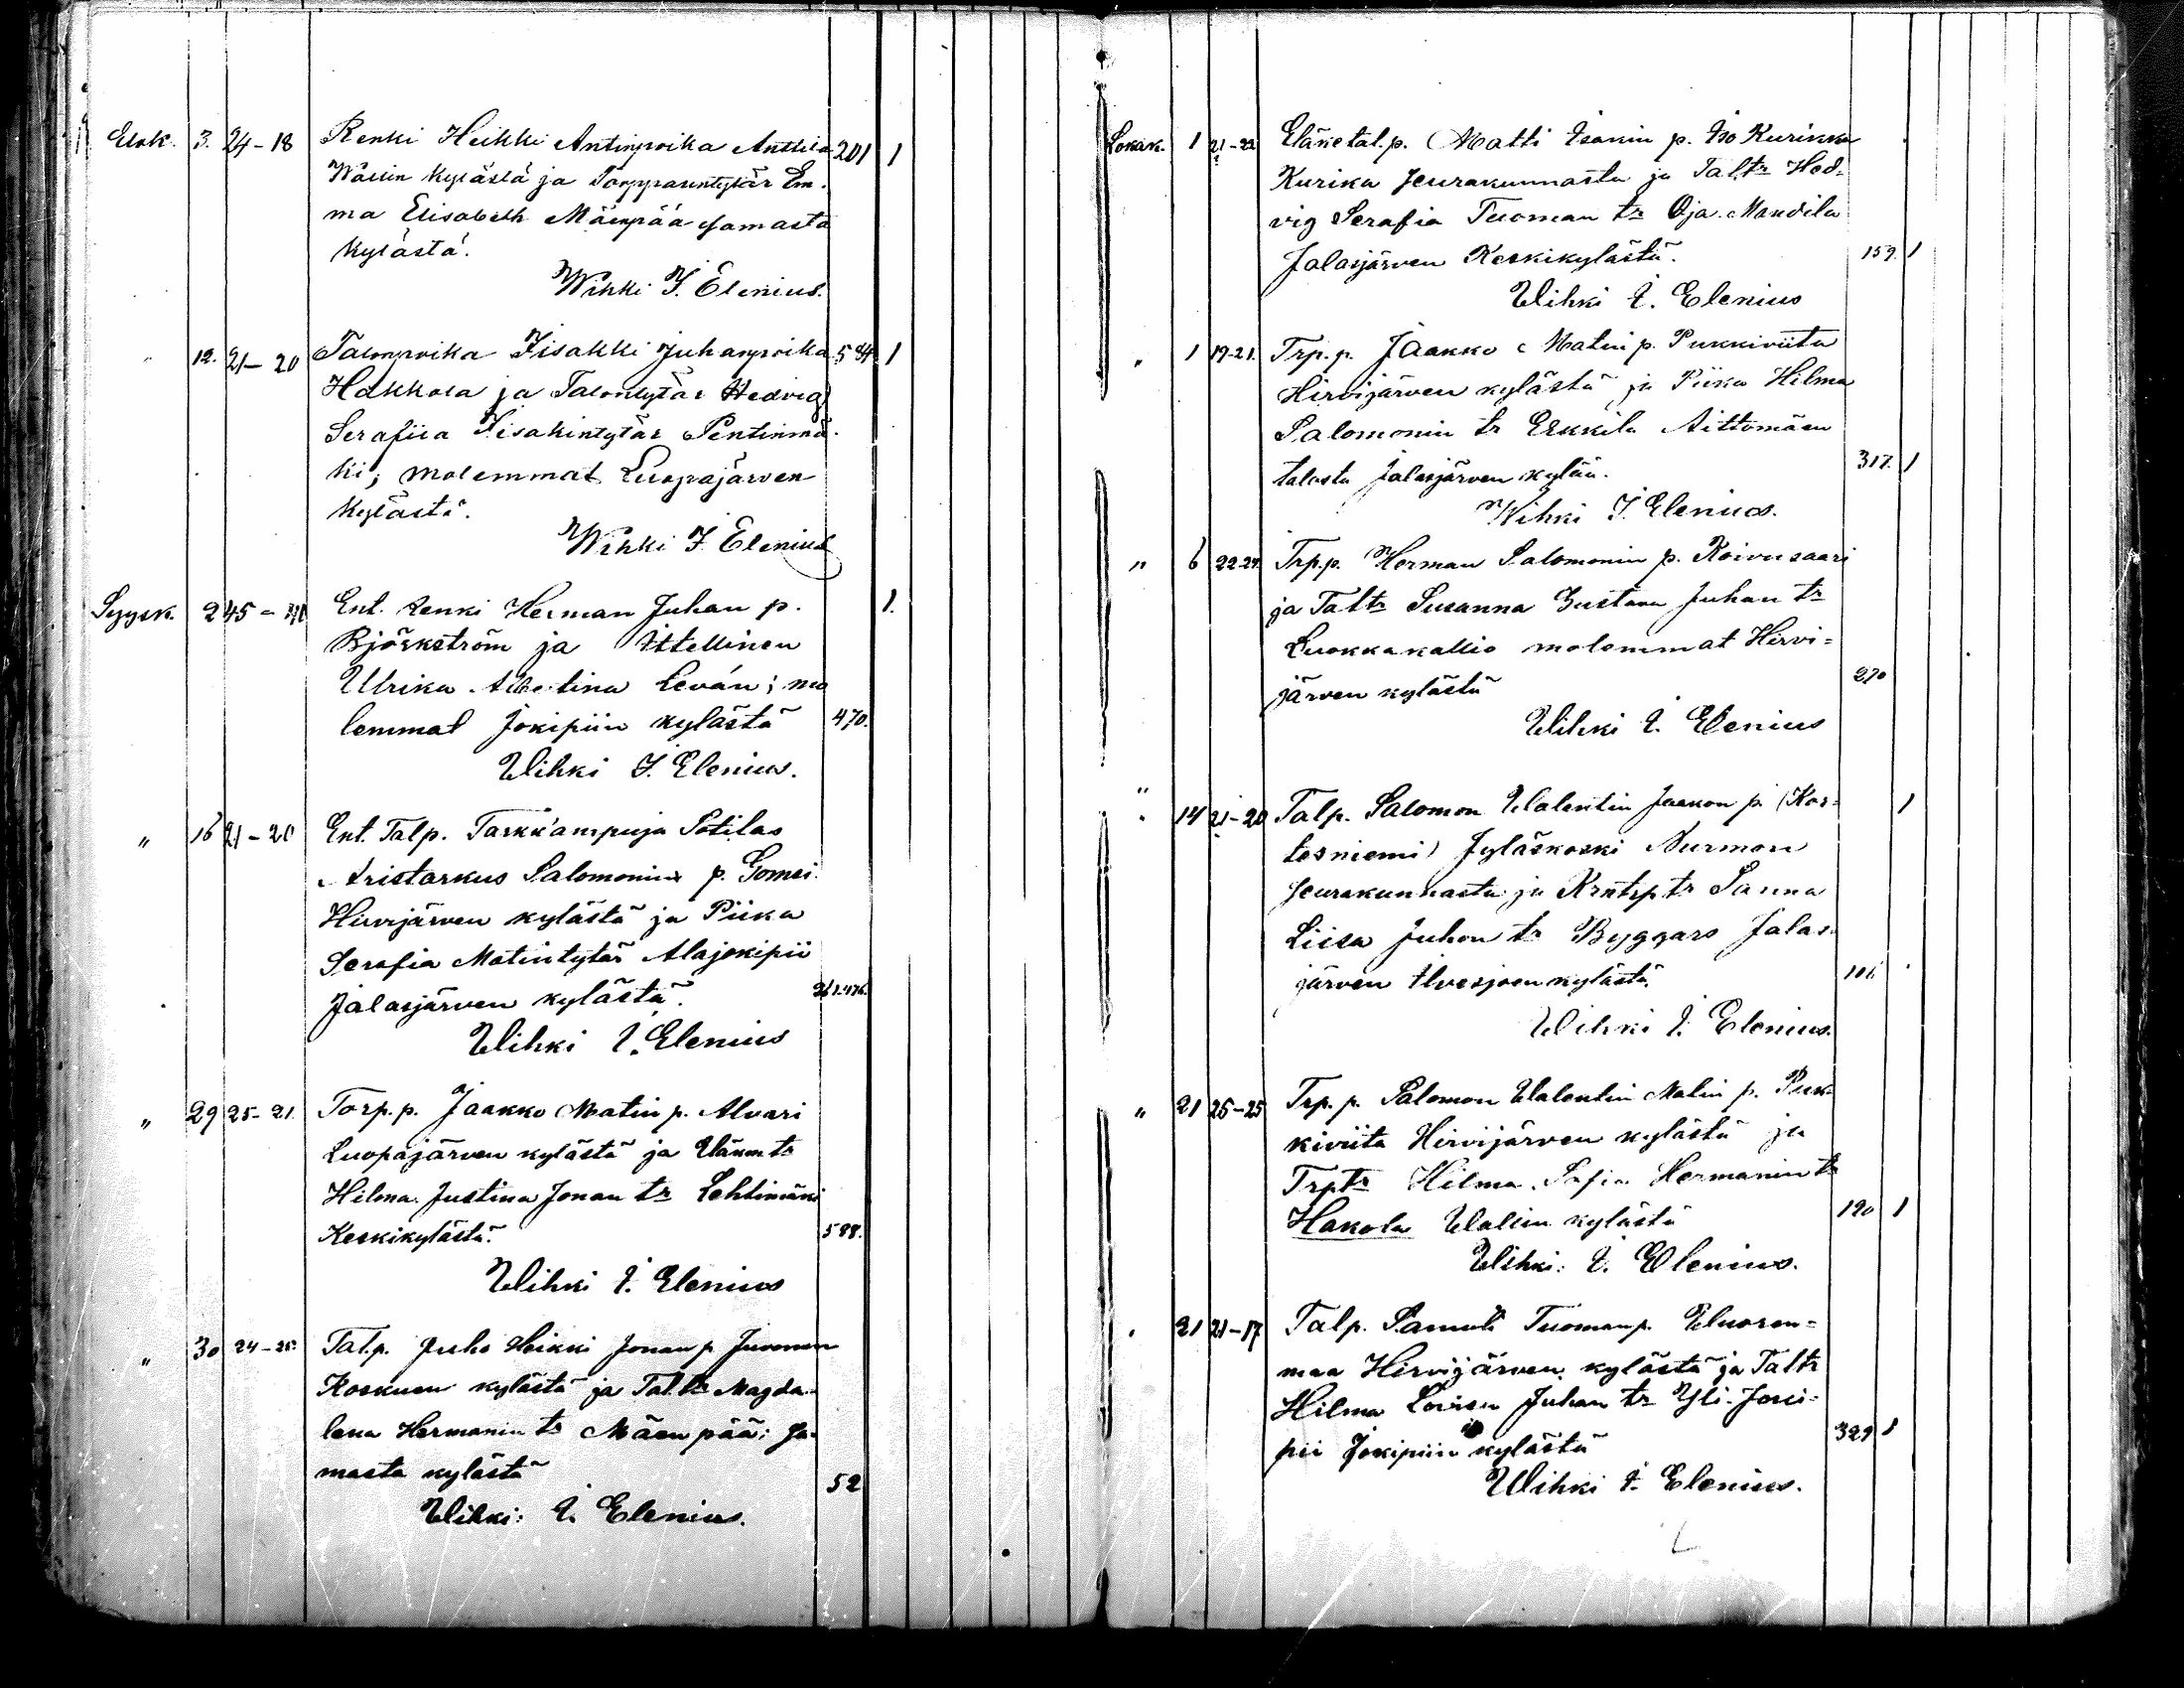 Elok. 3. 24-18 Renki Heikki Antinpoika Anttila 201 1
Wallin kylästä ja Torpparintytär Em-
ma Elisabeth Mäenpää samasta
kylästä.
Wihki I. Elenius.
" 12. 21-20 Talonpoika Iisakki Juhanpoika 594 1
Hakkola ja Talontytär Hedvig
Serafiia Iisakintytär Pentinmä-
ki; molemmat Luopajärven
kylästä.
Wihki I. Elenius
Syysk. 2 45 - Ent. Renki Herman Juhan p. 1.
Björkström ja Ittellinen
Ulrika Albertina Levän; mo
lemmat Jokipiin kylästä 470.
Wihki I. Elenius.
" 16 21-20 Ent. Talp. Tarkk'ampuja Sotilas
Aristarkus Salomonin p. Gomsi
Hirvijärven kylästä ja Piika
Serafia Matintytär Alajokipii
Jalasjärven kylästä.
Wihki I. Elenius
" 29 25-21. Torp. p. Jaakko Matin p. Alvari
Luopajärven kylästä ja tr
Hilma Justina Jonan tr Lehtimäki
Keskikylästä. 588.
Wihki I. Elenius
" 30 24-25. Talp. Juho Heikki Jonan p Juvonen
Koskuen kylästä ja Tal. tr Magda-
lena Hermanin tr Mäenpää; sa-
masta kylästä 52
Wihki: I. Elenius.
Lokak. 1 21-22 Eläketal. p. Matti Isakin p. Iso Kurikka
Kurika seurakunnasta ja Tal. tr Hed-
vig Serafia Tuoman tr Oja-Mandila
Jalasjärven Keskikylästä. 159. 1
Wihki I. Elenius
" 1 19-21. Trp. p. Jaakko Matin p. Pukkiviita
Hirvijärven kylästä ja Piika Hilma
Salomonin tr Erkkilä Aittomäen
talosta Jalasjärven kylän. 317. 1
Wihki I. Elenius.
" 6 22-24. Trp. p. Herman Salomonin p. Koivusaari
ja Taltr Susanna Gustava Juhan tr
Luokkakallio molemmat Hirvi-
järven kylästä 270
Wihki I. Elenius
" 14 21-20 Talp. Salomon Walentin Jaakon p. (Kor- 1
tesniemi) Jyläskoski Nurmon
seurakunnasta ja Krntrp tr Sanna
Liisa Juhon tr Byggars Jalas-
järven Ilvesjoen kylästä. 106
Wihki I. Elenius.
" 21 25-25 Trp. p. Salomon Walentin Matin p. Puk-
kiviita Hirvijärven kylästä ja
Trptr Hilma Sofia Hermanin tr
Hakola Wallin kylästä 190 1
Wihki: I. Elenius.
" 21 21-17 Talp. Samuli Tuomanp. Wuoren-
maa Hirvijärven kylästä ja Taltr
Hilma Lovisa Juhan tr Yli-Joki-
pii Jokipiin kylästä 329 1
Wihki I. Elenius.